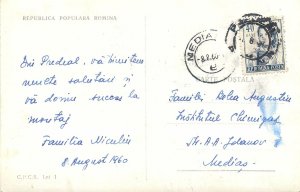 REPUBLICA POPULARA ROMINA
MEDIAȘ
-8.8.60
CARTE POSTALĂ
Din Predeal, vă trimitem
multe salutări și
vă dorim succes la
montaj
Familia Niculiu
8 August 1960
Familiei Bolea Augustin
Institutul Chimigaz
Str. A.A. Jdanov
Mediaș
C.P.C.S. Lei 1